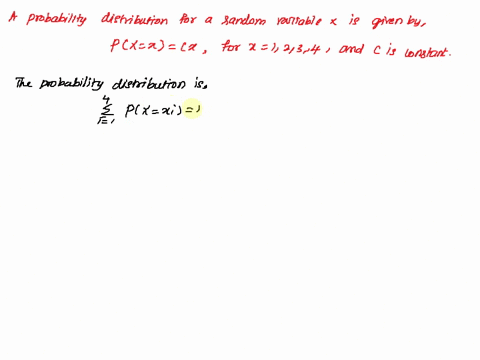 A probability distribution for a random variable x is given by,
P(X=x) = Cx, for x=1,2,3,4, and C is constant.
The probability distribution is.
4
Σ P(X=xi) =1
i=1